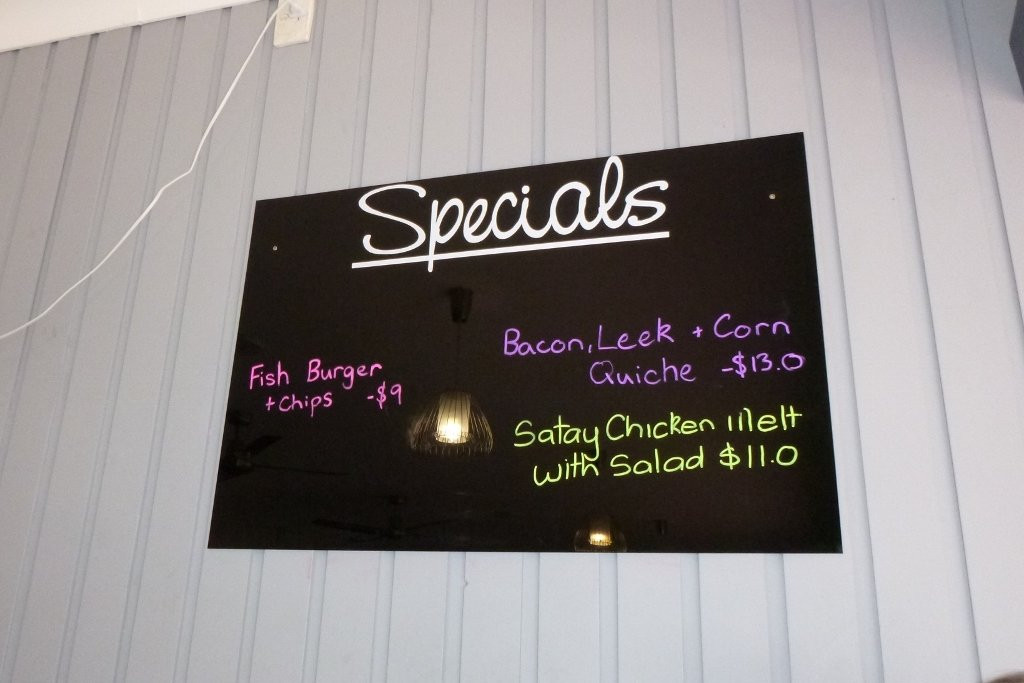 Specials
Fish Burger
+ Chips -$9
Bacon, Leek + Corn
Quiche -$13.0
Satay Chicken Melt
with Salad $11.0